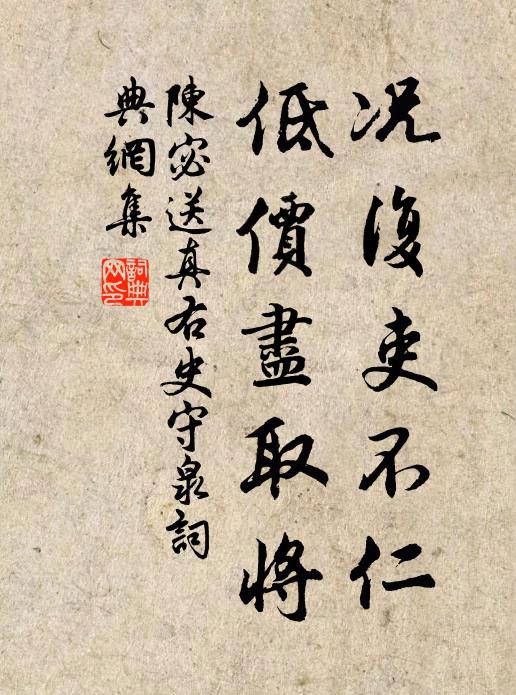 况復吏不仁
低價盡取將
陳宓送真右史守泉詞
典網集
詞典網印